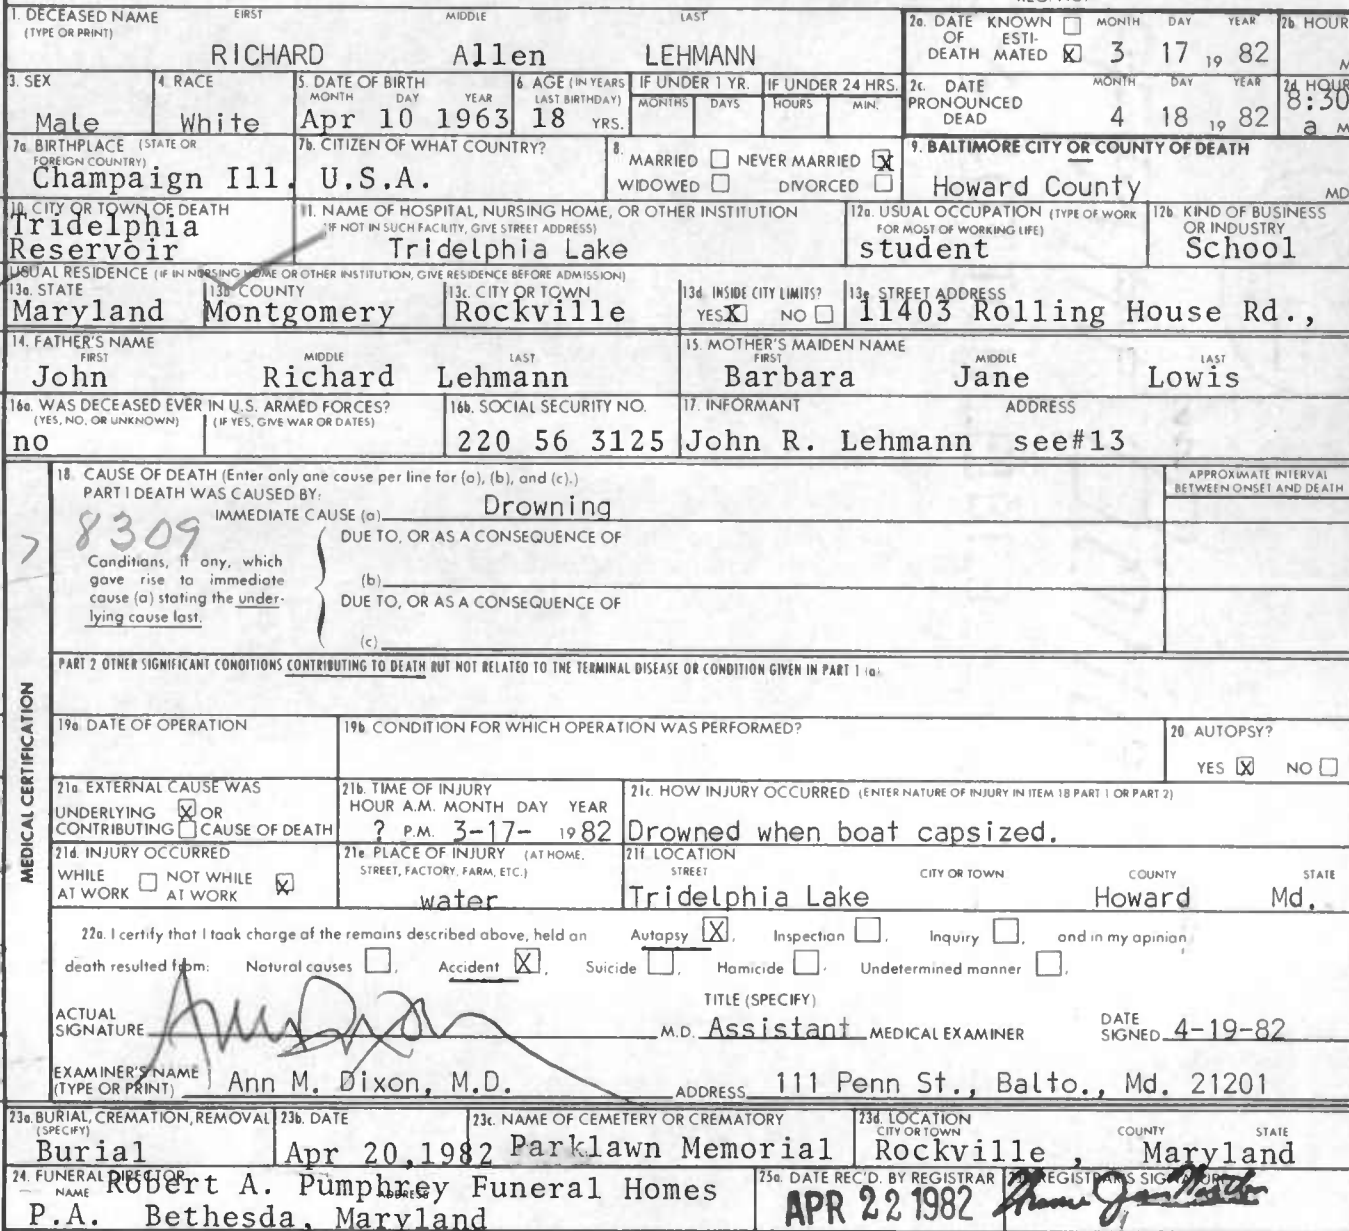 1. DECEASED NAME FIRST MIDDLE LAST
(TYPE OR PRINT)
RICHARD Allen LEHMANN
2a. DATE KNOWN ☐ MONTH DAY YEAR
OF ESTI-
DEATH MATED ☒ 3 17 19 82
2b. HOUR
M
3. SEX
Male
4. RACE
White
5. DATE OF BIRTH
MONTH DAY YEAR
Apr 10 1963
6. AGE (IN YEARS
LAST BIRTHDAY)
18 YRS.
IF UNDER 1 YR.
MONTHS DAYS
IF UNDER 24 HRS.
HOURS MIN.
2c. DATE MONTH DAY YEAR
PRONOUNCED
DEAD 4 18 19 82
2d. HOUR
8:30
a M
7a. BIRTHPLACE (STATE OR
FOREIGN COUNTRY)
Champaign Ill.
7b. CITIZEN OF WHAT COUNTRY?
U.S.A.
8.
MARRIED ☐ NEVER MARRIED ☒
WIDOWED ☐ DIVORCED ☐
9. BALTIMORE CITY OR COUNTY OF DEATH
Howard County MD
10. CITY OR TOWN OF DEATH
Tridelphia
Reservoir
11. NAME OF HOSPITAL, NURSING HOME, OR OTHER INSTITUTION
(IF NOT IN SUCH FACILITY, GIVE STREET ADDRESS)
Tridelphia Lake
12a. USUAL OCCUPATION (TYPE OF WORK
FOR MOST OF WORKING LIFE)
student
12b. KIND OF BUSINESS
OR INDUSTRY
School
USUAL RESIDENCE (IF IN NURSING HOME OR OTHER INSTITUTION, GIVE RESIDENCE BEFORE ADMISSION)
13a. STATE
Maryland
13b. COUNTY
Montgomery
13c. CITY OR TOWN
Rockville
13d. INSIDE CITY LIMITS?
YES ☒ NO ☐
13e. STREET ADDRESS
11403 Rolling House Rd.,
14. FATHER'S NAME
FIRST MIDDLE LAST
John Richard Lehmann
15. MOTHER'S MAIDEN NAME
FIRST MIDDLE LAST
Barbara Jane Lowis
16a. WAS DECEASED EVER IN U.S. ARMED FORCES?
(YES, NO, OR UNKNOWN) (IF YES, GIVE WAR OR DATES)
no
16b. SOCIAL SECURITY NO.
220 56 3125
17. INFORMANT ADDRESS
John R. Lehmann see#13
18. CAUSE OF DEATH (Enter only one cause per line for (a), (b), and (c).)
APPROXIMATE INTERVAL
BETWEEN ONSET AND DEATH
PART I DEATH WAS CAUSED BY:
IMMEDIATE CAUSE (a) Drowning
8309
DUE TO, OR AS A CONSEQUENCE OF
Conditions, if any, which
gave rise to immediate
cause (a) stating the under-
lying cause last.
(b)
DUE TO, OR AS A CONSEQUENCE OF
(c)
PART 2 OTHER SIGNIFICANT CONDITIONS CONTRIBUTING TO DEATH BUT NOT RELATED TO THE TERMINAL DISEASE OR CONDITION GIVEN IN PART 1 (a)
MEDICAL CERTIFICATION
19a. DATE OF OPERATION
19b. CONDITION FOR WHICH OPERATION WAS PERFORMED?
20. AUTOPSY?
YES ☒ NO ☐
21a. EXTERNAL CAUSE WAS
UNDERLYING ☒ OR
CONTRIBUTING ☐ CAUSE OF DEATH
21b. TIME OF INJURY
HOUR A.M. MONTH DAY YEAR
? P.M. 3-17- 1982
21c. HOW INJURY OCCURRED (ENTER NATURE OF INJURY IN ITEM 18 PART 1 OR PART 2)
Drowned when boat capsized.
21d. INJURY OCCURRED
WHILE ☐ NOT WHILE ☒
AT WORK AT WORK
21e. PLACE OF INJURY (AT HOME,
STREET, FACTORY, FARM, ETC.)
water
21f. LOCATION
STREET CITY OR TOWN COUNTY STATE
Tridelphia Lake Howard Md.
22a. I certify that I took charge of the remains described above, held an Autopsy ☒, Inspection ☐, Inquiry ☐, and in my opinion
death resulted from: Natural causes ☐, Accident ☒, Suicide ☐, Homicide ☐, Undetermined manner ☐.
ACTUAL
SIGNATURE
M.D.
TITLE (SPECIFY)
Assistant MEDICAL EXAMINER
DATE
SIGNED 4-19-82
EXAMINER'S NAME
(TYPE OR PRINT) Ann M. Dixon, M.D.
ADDRESS 111 Penn St., Balto., Md. 21201
23a. BURIAL, CREMATION, REMOVAL
(SPECIFY)
Burial
23b. DATE
Apr 20,1982
23c. NAME OF CEMETERY OR CREMATORY
Parklawn Memorial
23d. LOCATION
CITY OR TOWN COUNTY STATE
Rockville , Maryland
24. FUNERAL DIRECTOR
NAME ADDRESS
Robert A. Pumphrey Funeral Homes
P.A. Bethesda, Maryland
25a. DATE REC'D. BY REGISTRAR
APR 22 1982
REGISTRAR'S SIGNATURE